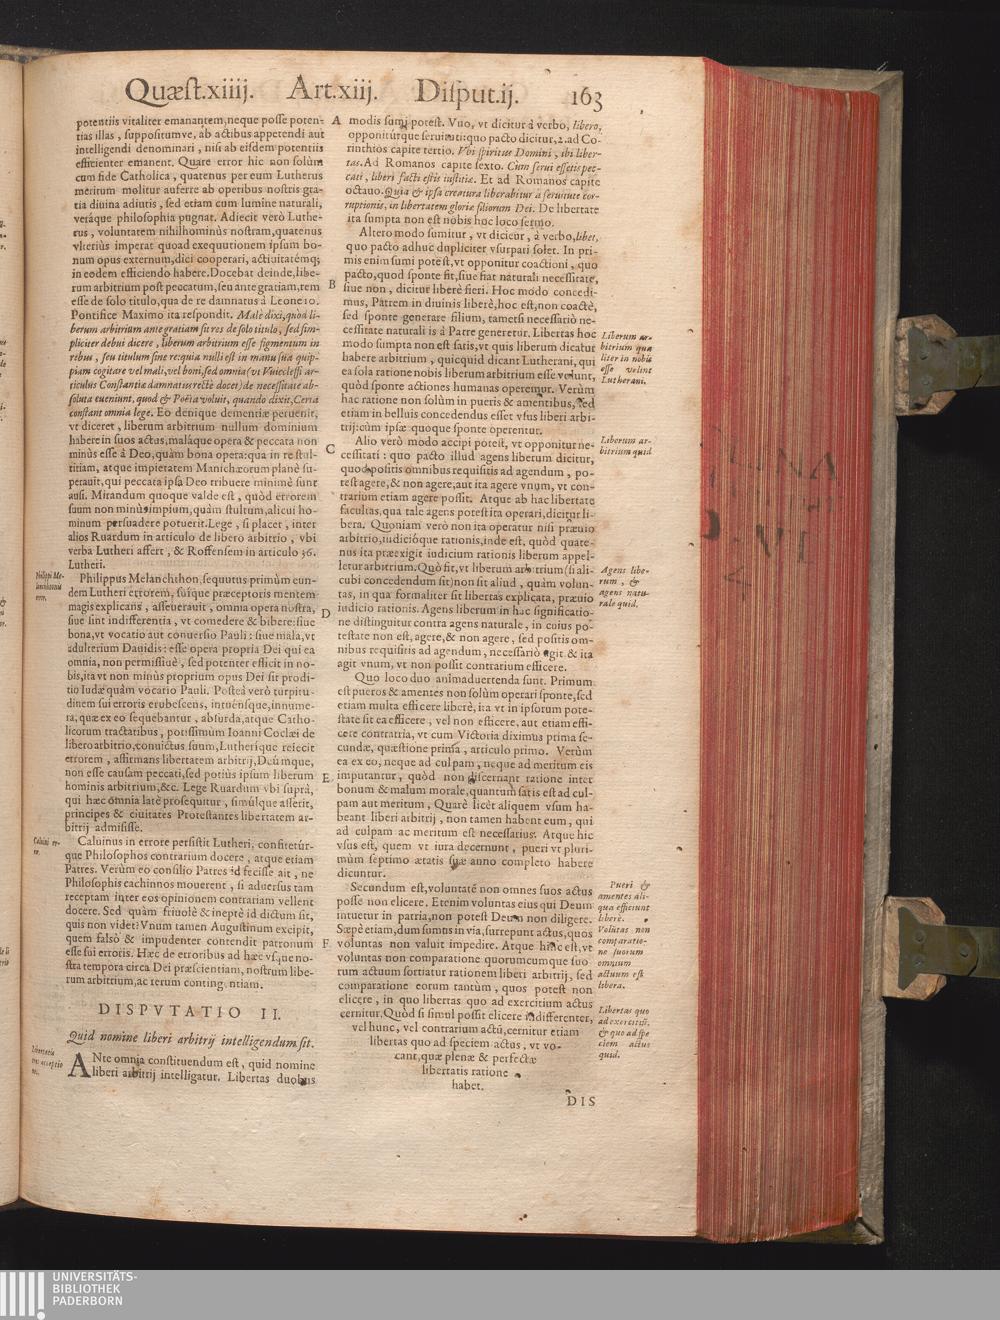 Quæst.xiiij. Art.xiij. Disput.ij. 163
potentiis vitaliter emanantem,neque posse poten-
tias illas, suppositumve, ab actibus appetendi aut
intelligendi denominari, nisi ab eisdem potentiis
efficienter emanent. Quare error hic non solùm
cum fide Catholica, quatenus per eum Lutherus
meritum molitur auferre ab operibus nostris gra-
tia diuina adiutis, sed etiam cum lumine naturali,
veráque philosophia pugnat. Adiecit verò Luthe-
rus, voluntatem nihilhominùs nostram,quatenus
vlterius imperat quoad exequutionem ipsum bo-
num opus externum,dici cooperari, actiuitatémq;
in eodem efficiendo habere.Docebat deinde,libe-
rum arbitrium post peccatum,seu ante gratiam,rem
esse de solo titulo,qua de re damnatus à Leone 10.
Pontifice Maximo ita respondit. Malè dixi,quòd li-
berum arbitrium ante gratiam sit res de solo titulo, sed sim-
pliciter debui dicere, liberum arbitrium esse figmentum in
rebus, seu titulum sine re:quia nulli est in manu sua quip-
piam cogitare vel mali,vel boni,sed omnia(vt Vuicleffi ar-
ticulus Constantiæ damnatus rectè docet)de necessitate ab-
soluta eueniunt,quod & Poëta voluit, quando dixit,Certa
constant omnia lege. Eo denique dementiæ peruenit,
vt diceret, liberum arbitrium nullum dominium
habere in suos actus,maláque opera & peccata non
minùs esse à Deo,quàm bona opera:qua in re stul-
titiam, atque impietatem Manichæorum planè su-
perauit,qui peccata ipsa Deo tribuere minimè sunt
ausi. Mirandum quoque valde est, quòd errorem
suum non minùs impium,quàm stultum,alicui ho-
minum persuadere potuerit.Lege, si placet, inter
alios Ruardum in articulo de libero arbitrio, vbi
verba Lutheri affert, & Roffensem in articulo 36.
Lutheri.
Philippi Me-
lanchthonis
error.
Philippus Melanchthon sequutus primùm eun-
dem Lutheri errorem, suíque præceptoris mentem
magis explicans, asseuerauit, omnia opera nostra,
siue sint indifferentia, vt comedere & bibere:siue
bona,vt vocatio aut conuersio Pauli: siue mala,vt
adulterium Dauidis: esse opera propria Dei qui ea
omnia,non permissiuè, sed potenter efficit in no-
bis,ita vt non minùs proprium opus Dei sit prodi-
tio Iudæ quàm vocatio Pauli. Posteà verò turpitu-
dinem sui erroris erubescens, intuensque,innume-
ra,quæ ex eo sequebantur, absurda,atque Catho-
licorum tractatibus, potissimùm Ioanni Coclæi de
libero arbitrio,conuictus suum,Lutherique reiecit
errorem, affirmans libertatem arbitrij,Deúmque,
non esse causam peccati,sed potiùs ipsum liberum
hominis arbitrium,&c. Lege Ruardum vbi suprà,
qui hæc omnia latè prosequitur, simúlque asserit,
principes & ciuitates Protestantes libertatem ar-
bitrij admisisse.
Caluini er-
ror.
Caluinus in errore persistit Lutheri, confitetúr-
que Philosophos contrarium docere, atque etiam
Patres. Verùm eo consilio Patres id fecisse ait, ne
Philosophis cachinnos mouerent, si aduersus tam
receptam inter eos opinionem contrariam vellent
docere. Sed quàm friuolè & ineptè id dictum sit,
quis non videt?Vnum tamen Augustinum excipit,
quem falsò & impudenter contendit patronum
esse sui erroris. Hæc de erroribus ad hæc vsque no-
stra tempora circa Dei præscientiam, nostrum libe-
rum arbitrium,ac rerum contingentiam.
DISPVTATIO II.
Quid nomine liberi arbitrij intelligendum sit.
ANte omnia constituendum est, quid nomine
liberi arbitrij intelligatur. Libertas duobus
A modis sumi potest. Vno, vt dicitur à verbo, libero,
opponitúrque seruituti:quo pacto dicitur,2.ad Co-
rinthios capite tertio. Vbi spiritus Domini, ibi liber-
tas.Ad Romanos capite sexto. Cum serui essetis pec-
cati, liberi facti estis iustitiæ. Et ad Romanos capite
octauo.Quia & ipsa creatura liberabitur à seruitute cor-
ruptionis, in libertatem gloriæ filiorum Dei. De libertate
ita sumpta non est nobis hoc loco sermo.
Altero modo sumitur, vt dicitur, à verbo,libet,
quo pacto adhuc dupliciter vsurpari solet. In pri-
mis enim sumi potest,vt opponitur coactioni, quo
pacto,quod sponte fit,siue fiat naturali necessitate,
B siue non, dicitur liberè fieri. Hoc modo concedi-
mus, Patrem in diuinis liberè,hoc est,non coactè,
sed sponte generare filium, tametsi necessariò ne-
cessitate naturali is à Patre generetur. Libertas hoc
modo sumpta non est satis,vt quis liberum dicatur
habere arbitrium, quicquid dicant Lutherani, qui
ea sola ratione nobis liberum arbitrium esse volunt,
quòd sponte actiones humanas operemur. Verùm
hac ratione non solùm in pueris & amentibus, sed
etiam in belluis concedendus esset vsus liberi arbi-
trij:cùm ipsæ quoque sponte operentur.
Liberum ar-
bitrium qua
liter in nobis
esse velint
Lutherani.
Alio verò modo accipi potest, vt opponitur ne-
C cessitati: quo pacto illud agens liberum dicitur,
quod positis omnibus requisitis ad agendum, po-
test agere,& non agere,aut ita agere vnum, vt con-
trarium etiam agere possit. Atque ab hac libertate
facultas,qua tale agens potest ita operari,dicitur li-
bera. Quoniam verò non ita operatur nisi præuio
arbitrio,iudicióque rationis,inde est, quòd quate-
nus ita præexigit iudicium rationis liberum appel-
letur arbitrium. Quò fit,vt liberum arbitrium (si ali-
cubi concedendum sit)non sit aliud, quàm volun-
tas, in qua formaliter sit libertas explicata, præuio
D iudicio rationis. Agens liberum in hac significatio-
ne distinguitur contra agens naturale, in cuius po-
testate non est, agere,& non agere, sed positis om-
nibus requisitis ad agendum, necessariò agit & ita
agit vnum, vt non possit contrarium efficere.
Liberum ar-
bitrium quid.
Agens libe-
rum, &
agens natu-
rale quid.
Quo loco duo animaduertenda sunt. Primum
est pueros & amentes non solùm operari sponte,sed
etiam multa efficere liberè, ita vt in ipsorum pote-
state sit ea efficere, vel non efficere, aut etiam effi-
cere contraria, vt cum Victoria diximus prima se-
cundæ, quæstione prima, articulo primo. Verùm
ea ex eo, neque ad culpam, neque ad meritum eis
E imputantur, quòd non discernant ratione inter
bonum & malum morale,quantum satis est ad cul-
pam aut meritum, Quarè licèt aliquem vsum ha-
beant liberi arbitrij, non tamen habent eum, qui
ad culpam ac meritum est necessarius. Atque hic
vsus est, quem vt iura decernunt, pueri vt pluri-
mùm septimo ætatis suæ anno completo habere
dicuntur.
Pueri &
amentes ali-
qua efficiunt
liberè.
Secundum est,voluntatẽ non omnes suos actus
posse non elicere. Etenim voluntas eius qui Deum
intuetur in patria,non potest Deum non diligere.
Sæpè etiam,dum sumus in via,surrepunt actus,quos
F voluntas non valuit impedire. Atque hinc est,vt
voluntas non comparatione quorumcumque suo
rum actuum sortiatur rationem liberi arbitrij, sed
comparatione eorum tantùm, quos potest non
elicere, in quo libertas quo ad exercitium actus
cernitur.Quòd si simul possit elicere indifferenter,
vel hunc, vel contrarium actũ,cernitur etiam
libertas quo ad speciem actus, vt vo-
cant,quæ plenæ & perfectæ
libertatis ratione
habet.
Volũtas non
comparatio-
ne suorum
omnium
actuum est
libera.
Libertas quo
ad exercitiũ,
& quo ad spe
ciem actus
quid.
DIS
UNIVERSITÄTS-
BIBLIOTHEK
PADERBORN